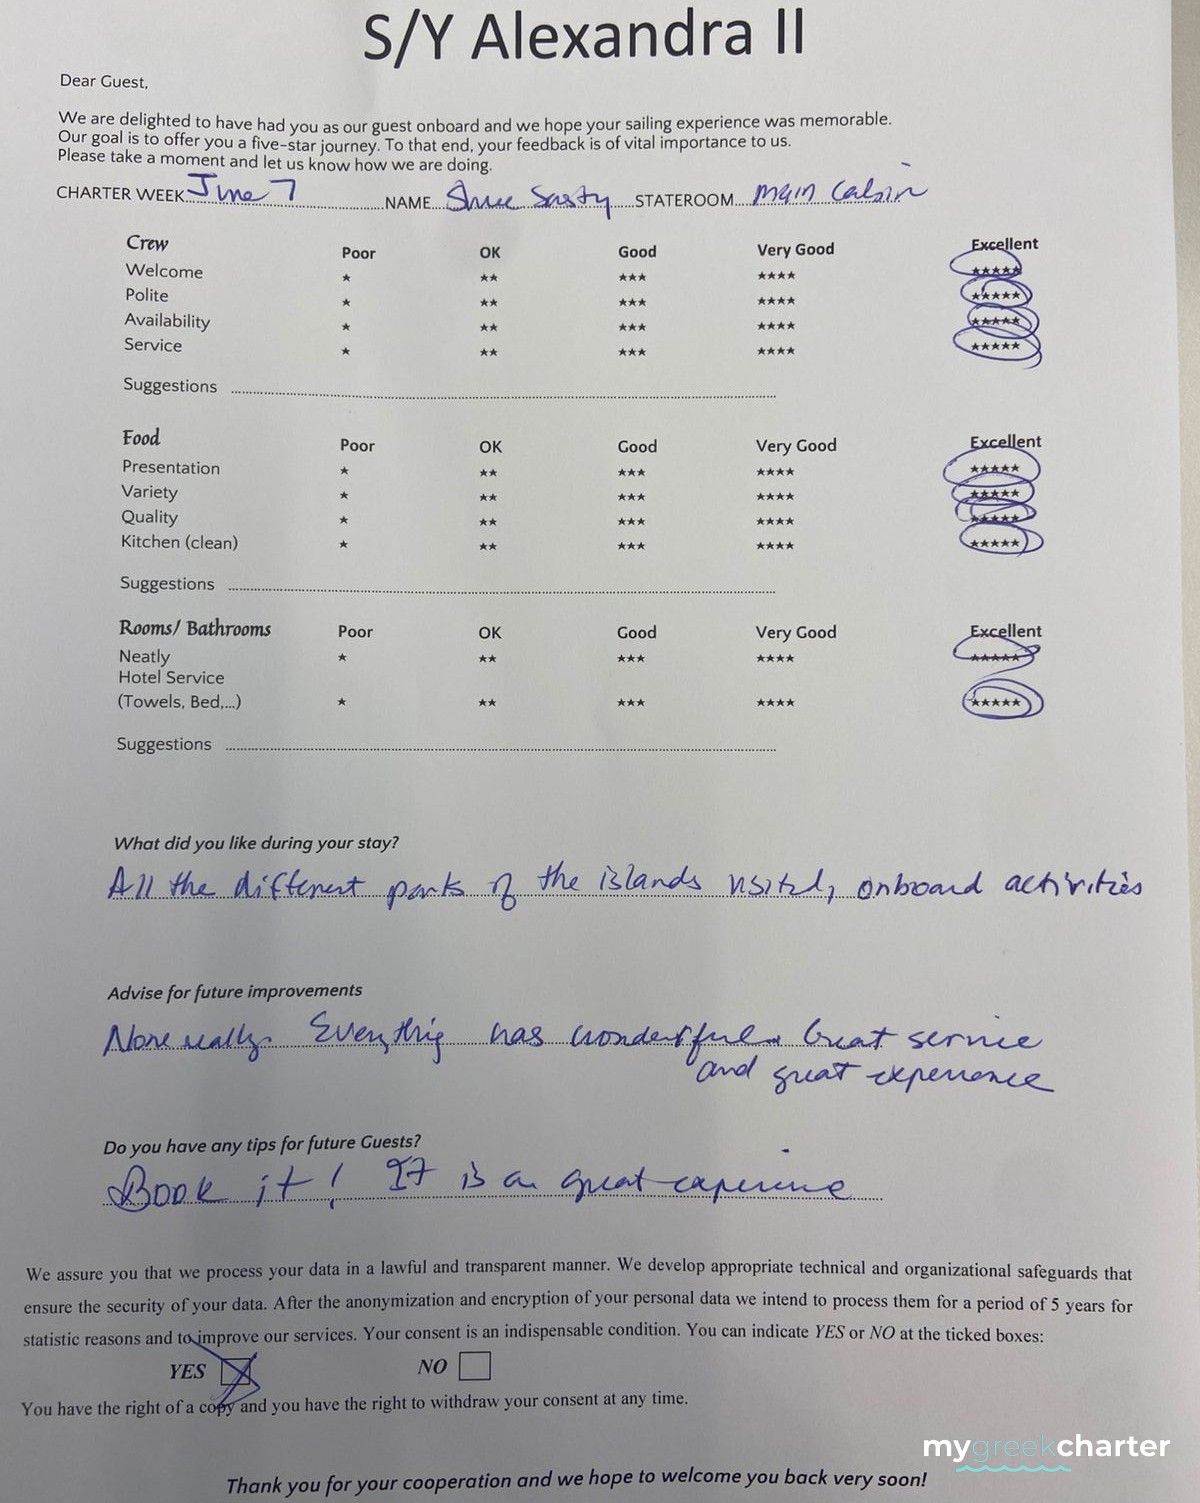 S/Y Alexandra II
Dear Guest,
We are delighted to have had you as our guest onboard and we hope your sailing experience was memorable.
Our goal is to offer you a five-star journey. To that end, your feedback is of vital importance to us.
Please take a moment and let us know how we are doing.
CHARTER WEEK June 7 NAME STATEROOM main Cabin
Crew Poor OK Good Very Good Excellent
Welcome ★ ★★ ★★★ ★★★★ ★★★★★
Polite ★ ★★ ★★★ ★★★★ ★★★★★
Availability ★ ★★ ★★★ ★★★★ ★★★★★
Service ★ ★★ ★★★ ★★★★ ★★★★★
Suggestions
Food Poor OK Good Very Good Excellent
Presentation ★ ★★ ★★★ ★★★★ ★★★★★
Variety ★ ★★ ★★★ ★★★★ ★★★★★
Quality ★ ★★ ★★★ ★★★★ ★★★★★
Kitchen (clean) ★ ★★ ★★★ ★★★★ ★★★★★
Suggestions
Rooms/ Bathrooms Poor OK Good Very Good Excellent
Neatly ★ ★★ ★★★ ★★★★ ★★★★★
Hotel Service
(Towels, Bed,...) ★ ★★ ★★★ ★★★★ ★★★★★
Suggestions
What did you like during your stay?
All the different parts of the islands visited, onboard activities
Advise for future improvements
None really. Everything was wonderful. Great service
and great experience
Do you have any tips for future Guests?
Book it! It is a great experience
We assure you that we process your data in a lawful and transparent manner. We develop appropriate technical and organizational safeguards that
ensure the security of your data. After the anonymization and encryption of your personal data we intend to process them for a period of 5 years for
statistic reasons and to improve our services. Your consent is an indispensable condition. You can indicate YES or NO at the ticked boxes:
YES NO
You have the right of a copy and you have the right to withdraw your consent at any time.
mygreekcharter
Thank you for your cooperation and we hope to welcome you back very soon!